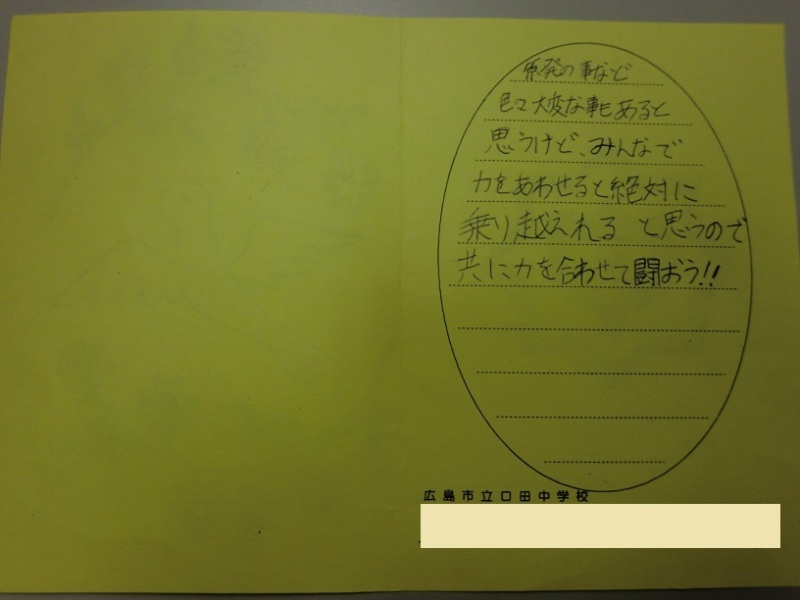 原発の事など
色々大変な事もあると
思うけど、みんなで
力をあわせると絶対に
乗り越えれる と思うので
共に力を合わせて闘おう!!
広島市立口田中学校